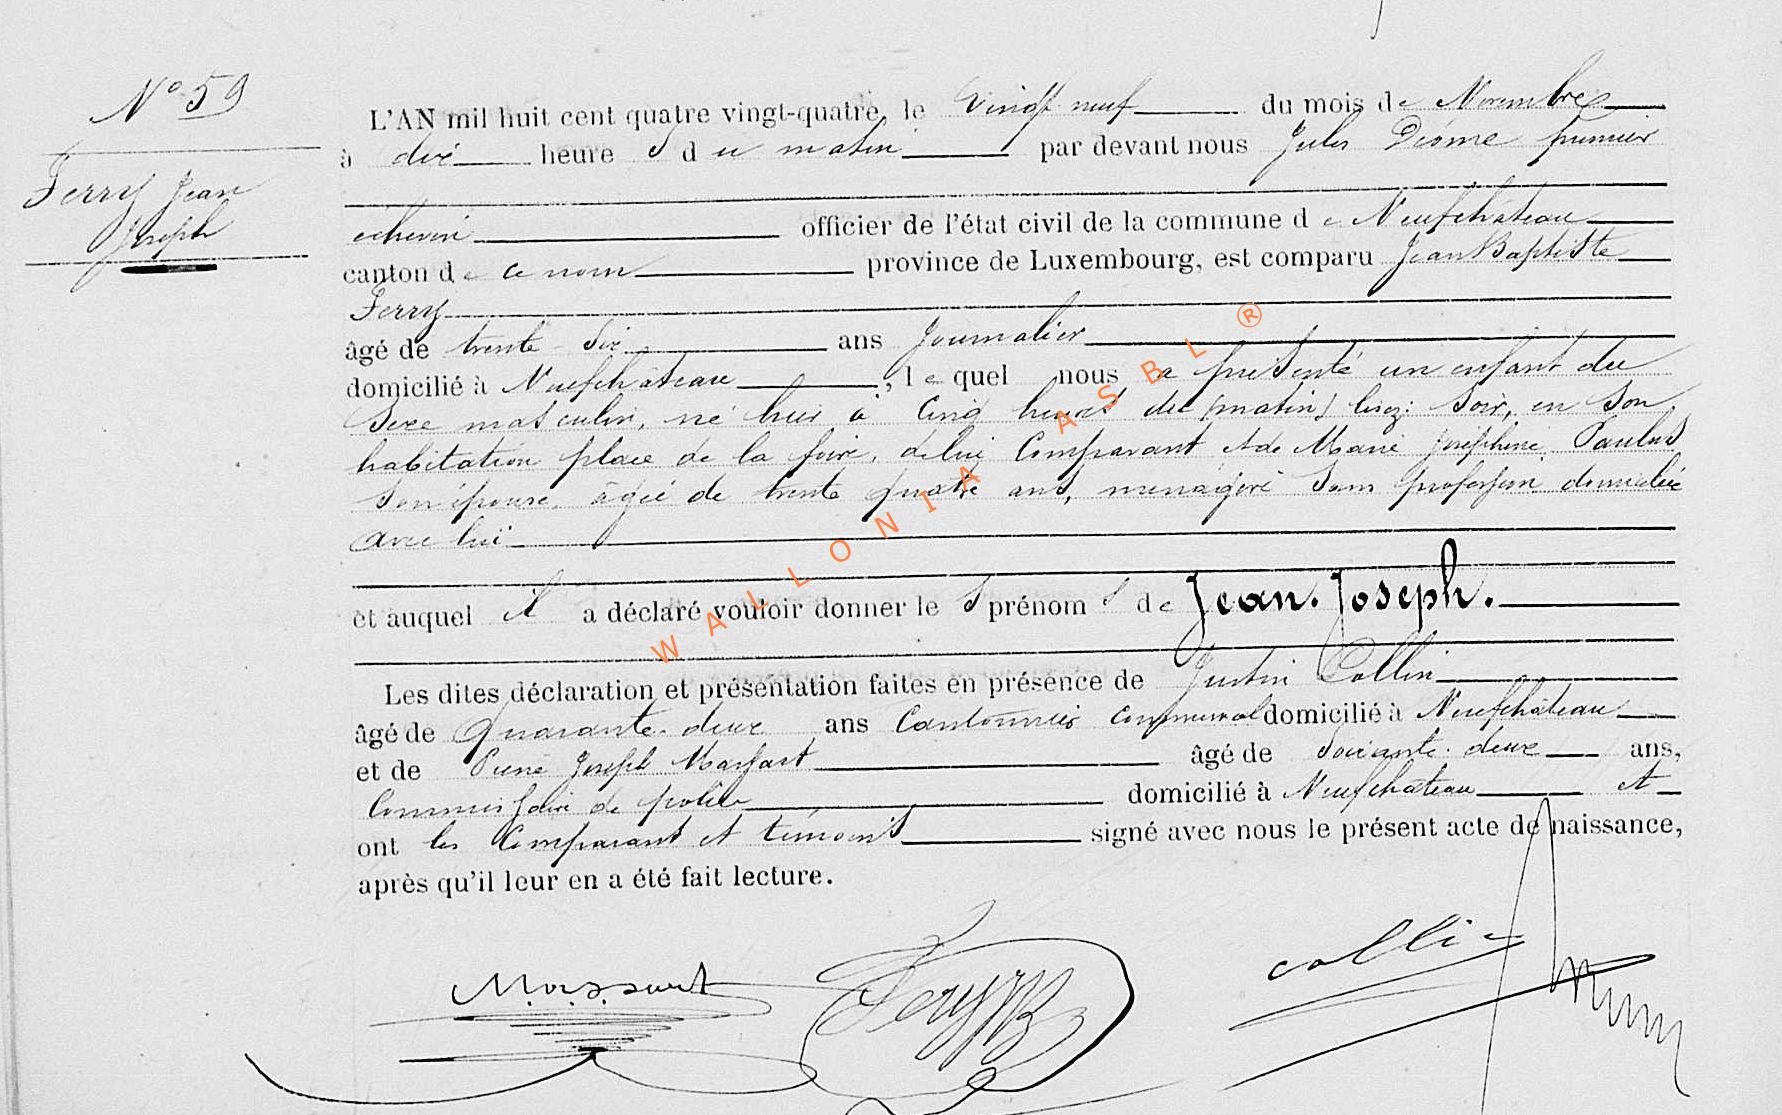 N° 59
Ferry Jean
Joseph
L'AN mil huit cent quatre vingt-quatre, le vingt neuf du mois de Novembre
à dix heure s du matin par devant nous Jules Diome premier
échevin officier de l'état civil de la commune de Neufchâteau
canton de ce nom province de Luxembourg, est comparu Jean Baptiste
Ferry
âgé de trente-six ans Journalier
domicilié à Neufchâteau, lequel nous a présenté un enfant du
sexe masculin, né hier à cinq heures du (matin) lisez: soir, en son
habitation place de la foire, de lui Comparant et de Marie Joséphine Paulus
son épouse, âgée de trente quatre ans, menagère sans profession domiciliée
avec lui
et auquel il a déclaré vouloir donner le s prénom s de Jean. Joseph.
Les dites déclaration et présentation faites en présence de Justin Collin
âgé de Quarante-deux ans Cantonnier communal domicilié à Neufchâteau
et de Pierre Joseph Massart âgé de soixante-deux ans,
Commissaire de police domicilié à Neufchâteau et
ont les Comparant et témoins signé avec nous le présent acte de naissance,
après qu'il leur en a été fait lecture.
Massart Ferry JB Collin
WALLONIA ASBL ®